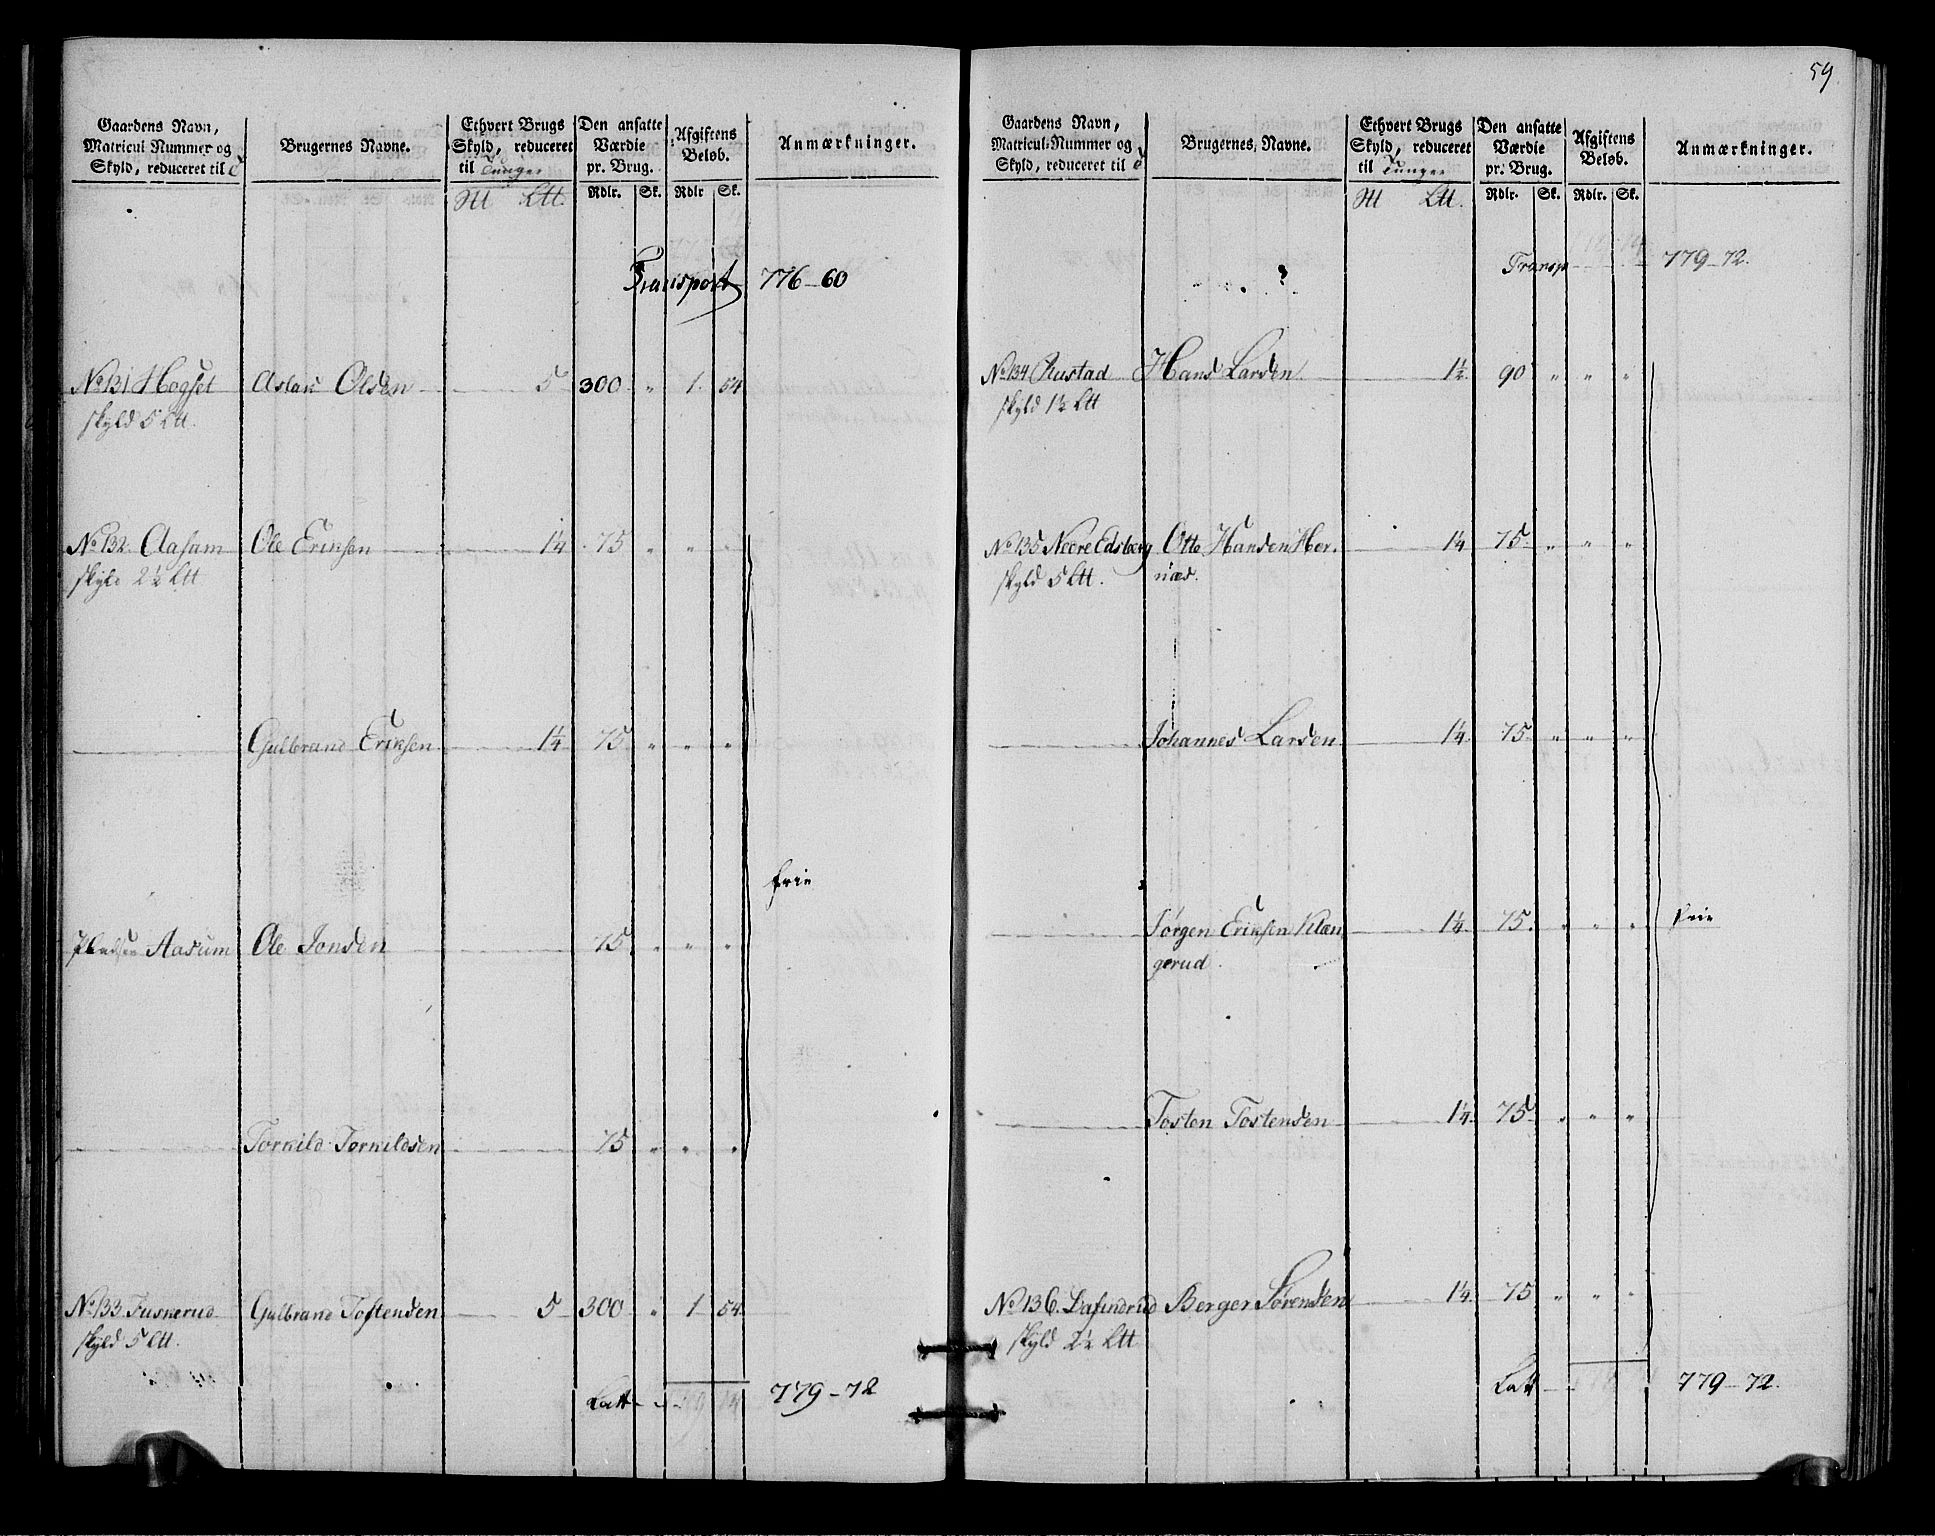 Gaardens Navn, Matricul Nummer og Skyld, reduceret til
Brugernes Navne.
Ethvert Brugs Skyld, reduceret til Tunger
Den ansatte Værdie pr. Brug.
Afgiftens Beløb.
Anmærkninger.
Rdlr. Sk. Rdlr Sk.
Transport 776-60
No 131 Hogset Aslak Olsen 5 300 " 1. 54
skyld 5 Ltt.
No 132. Aasam Ole Eriksen 1¼ 75 " " "
skyld 2½ Ltt
Gulbrand Eriksen 1¼ 75 " " "
frie
Pladsen Aasum Ole Jonsen 75 " " "
Torkild Torkildsen 75 " " "
No 133 Fuskerud Gulbrand Tostensen 5 300 " 1 54
skyld 5 Ltt.
Latt 779-72
59
Gaardens Navn, Matricul-Nummer og Skyld, reduceret til
Brugernes Navne.
Ethvert Brugs Skyld, reduceret til Tunger
Den ansatte Værdie pr. Brug.
Afgiftens Beløb.
Anmærkninger.
Rdlr. Sk. Rdlr. Sk.
Transp 779-72.
No 134 Rustad Hans Larsen 1½ 90 " " "
skyld 1½ Ltt
No 135 Nedre Edsberg Otte Hansen Hor-
skyld 5 Ltt. næs. 1¼ 75 " " "
Johannes Larsen 1¼ 75 " " "
Jørgen Eriksen Klan 1¼ 75. " " " frie
gerud.
Tosten Tostensen 1¼ 75 " " "
No 136. Berger Sørensen 1¼ 75 " " "
skyld 2½ Ltt
Latt 779-72.